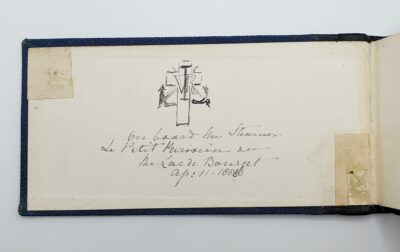 On board the Steamer
Le Petit on
the Lac de Bourget
Ap: 11. 188